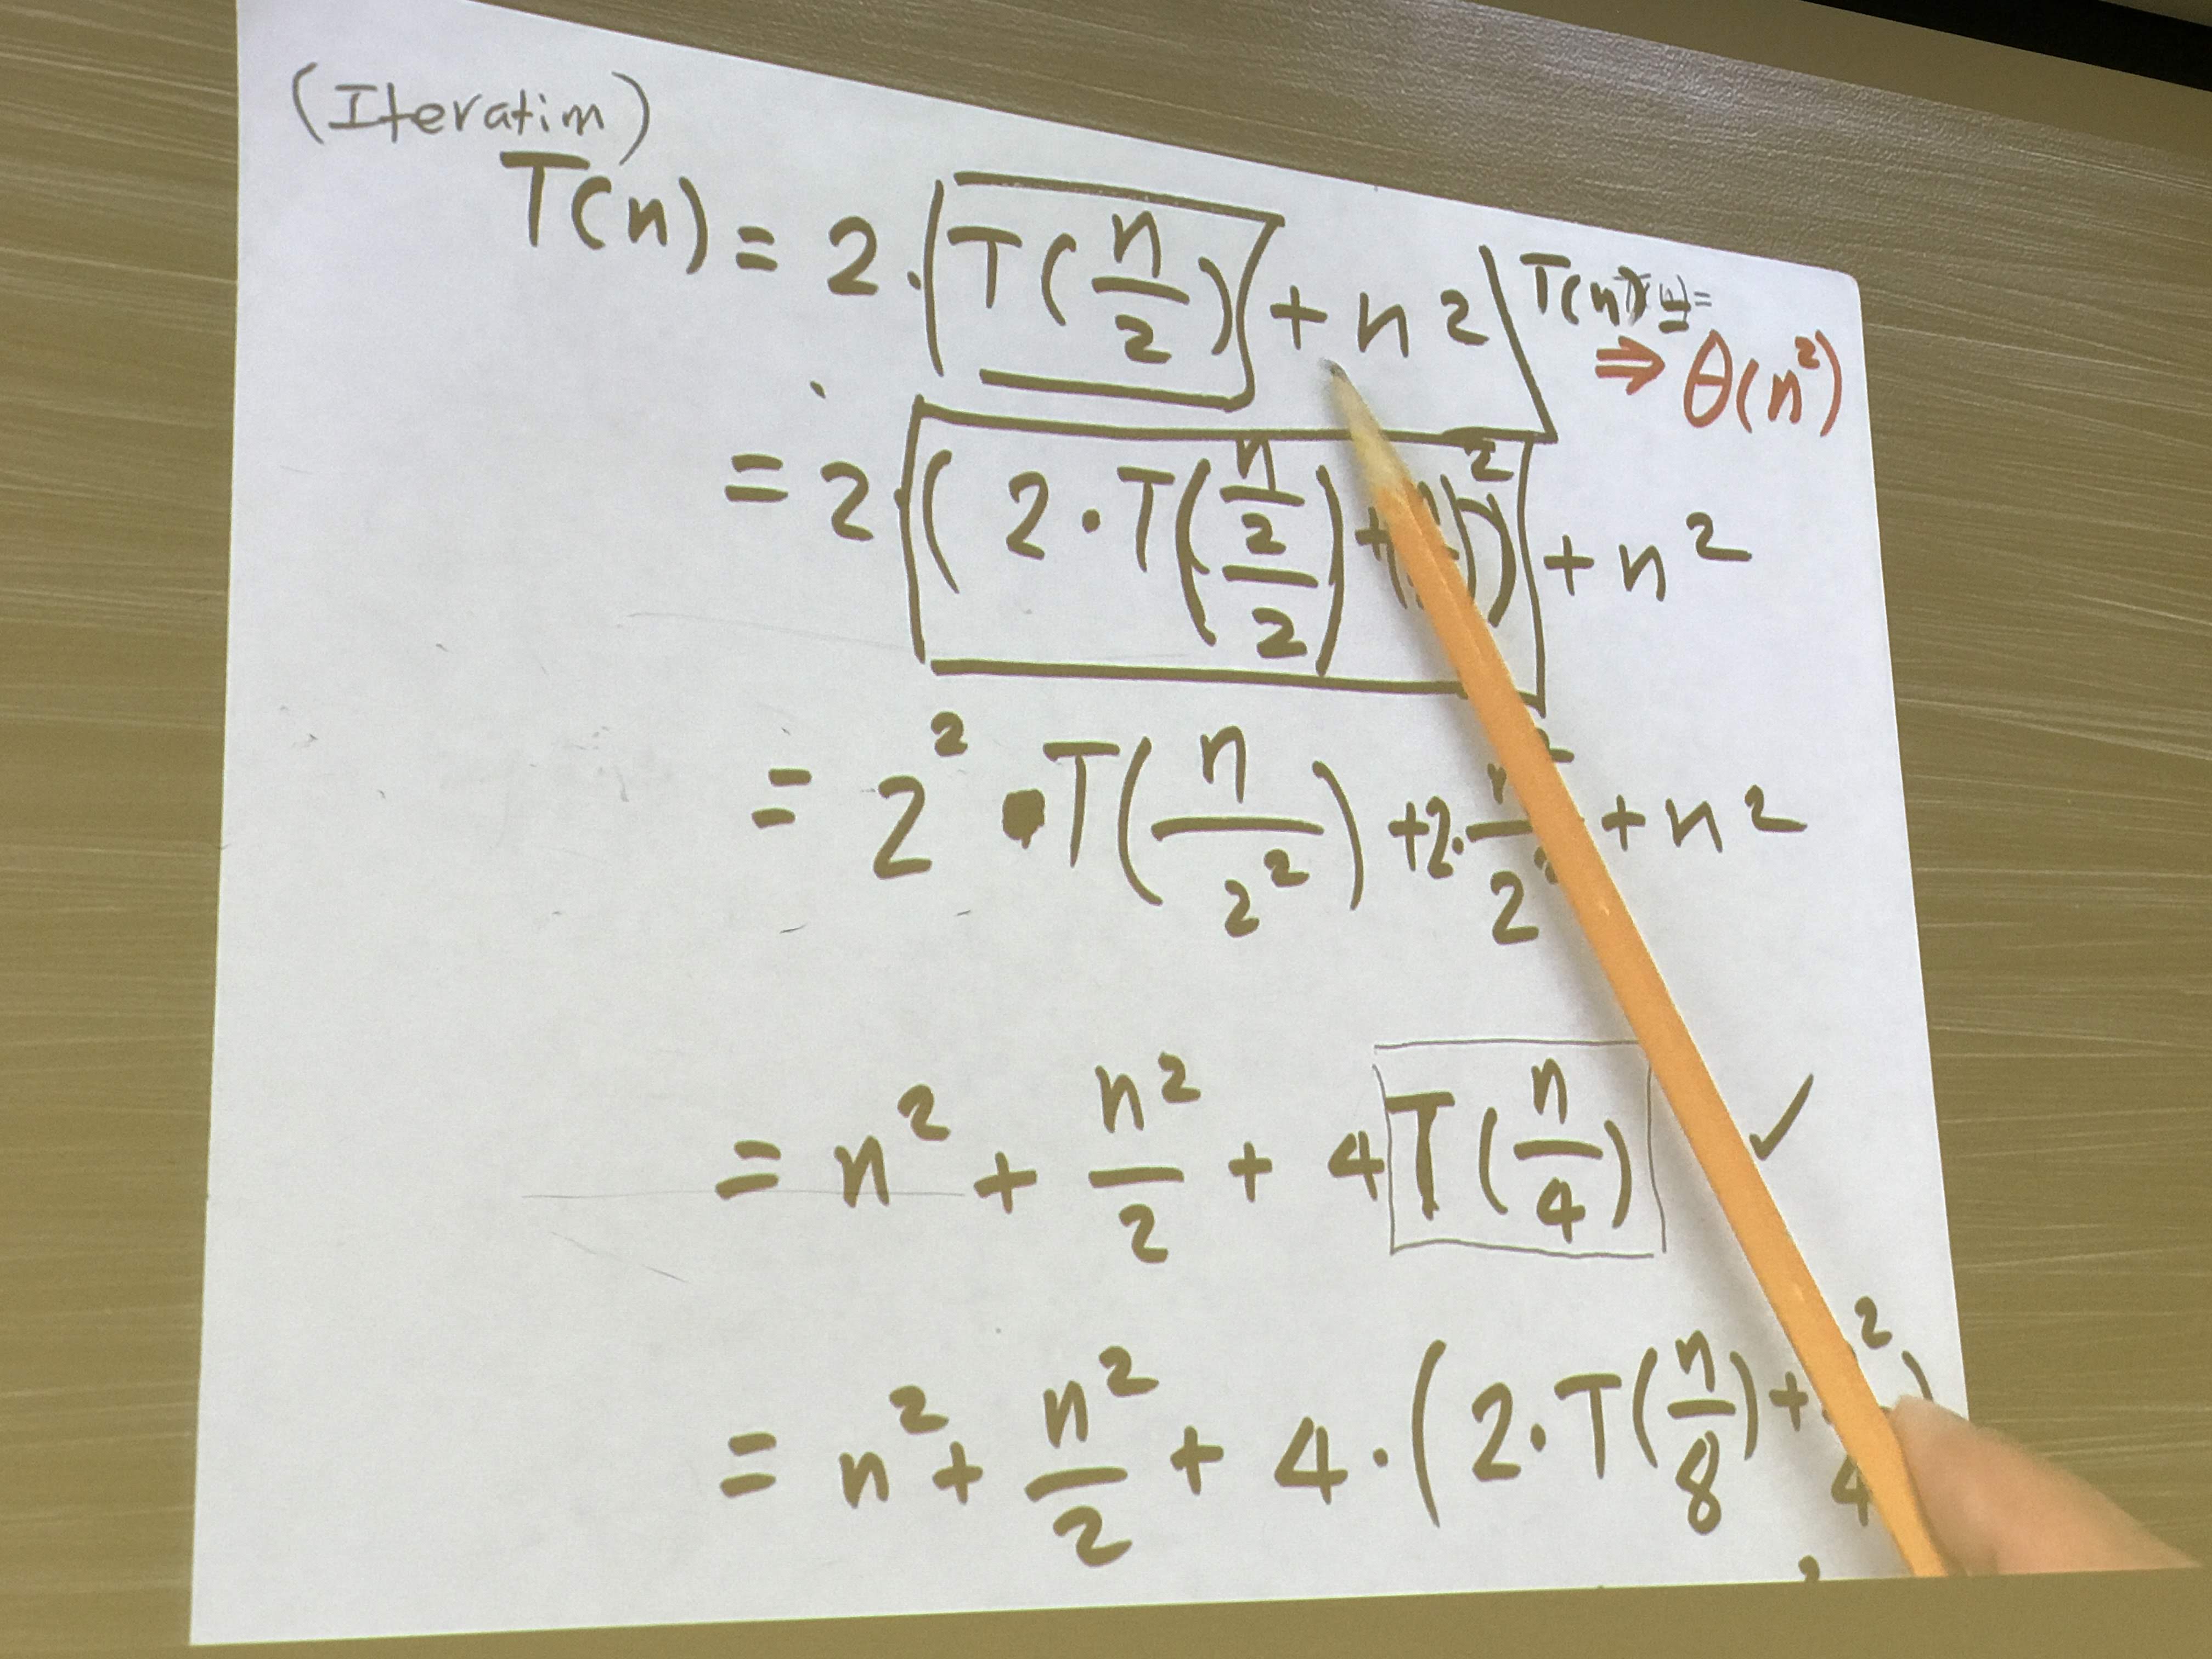 (Iteration)
T(n) = 2 · T(n/2) + n²
T(n)
⇒ θ(n²)
= 2 · (2 · T((n/2)/2) + ( )²) + n²
= 2² · T(n/2²) + 2 · n²/2² + n²
= n² + n²/2 + 4 T(n/4) ✓
= n² + n²/2 + 4 · (2 · T(n/8) + 4 ²)